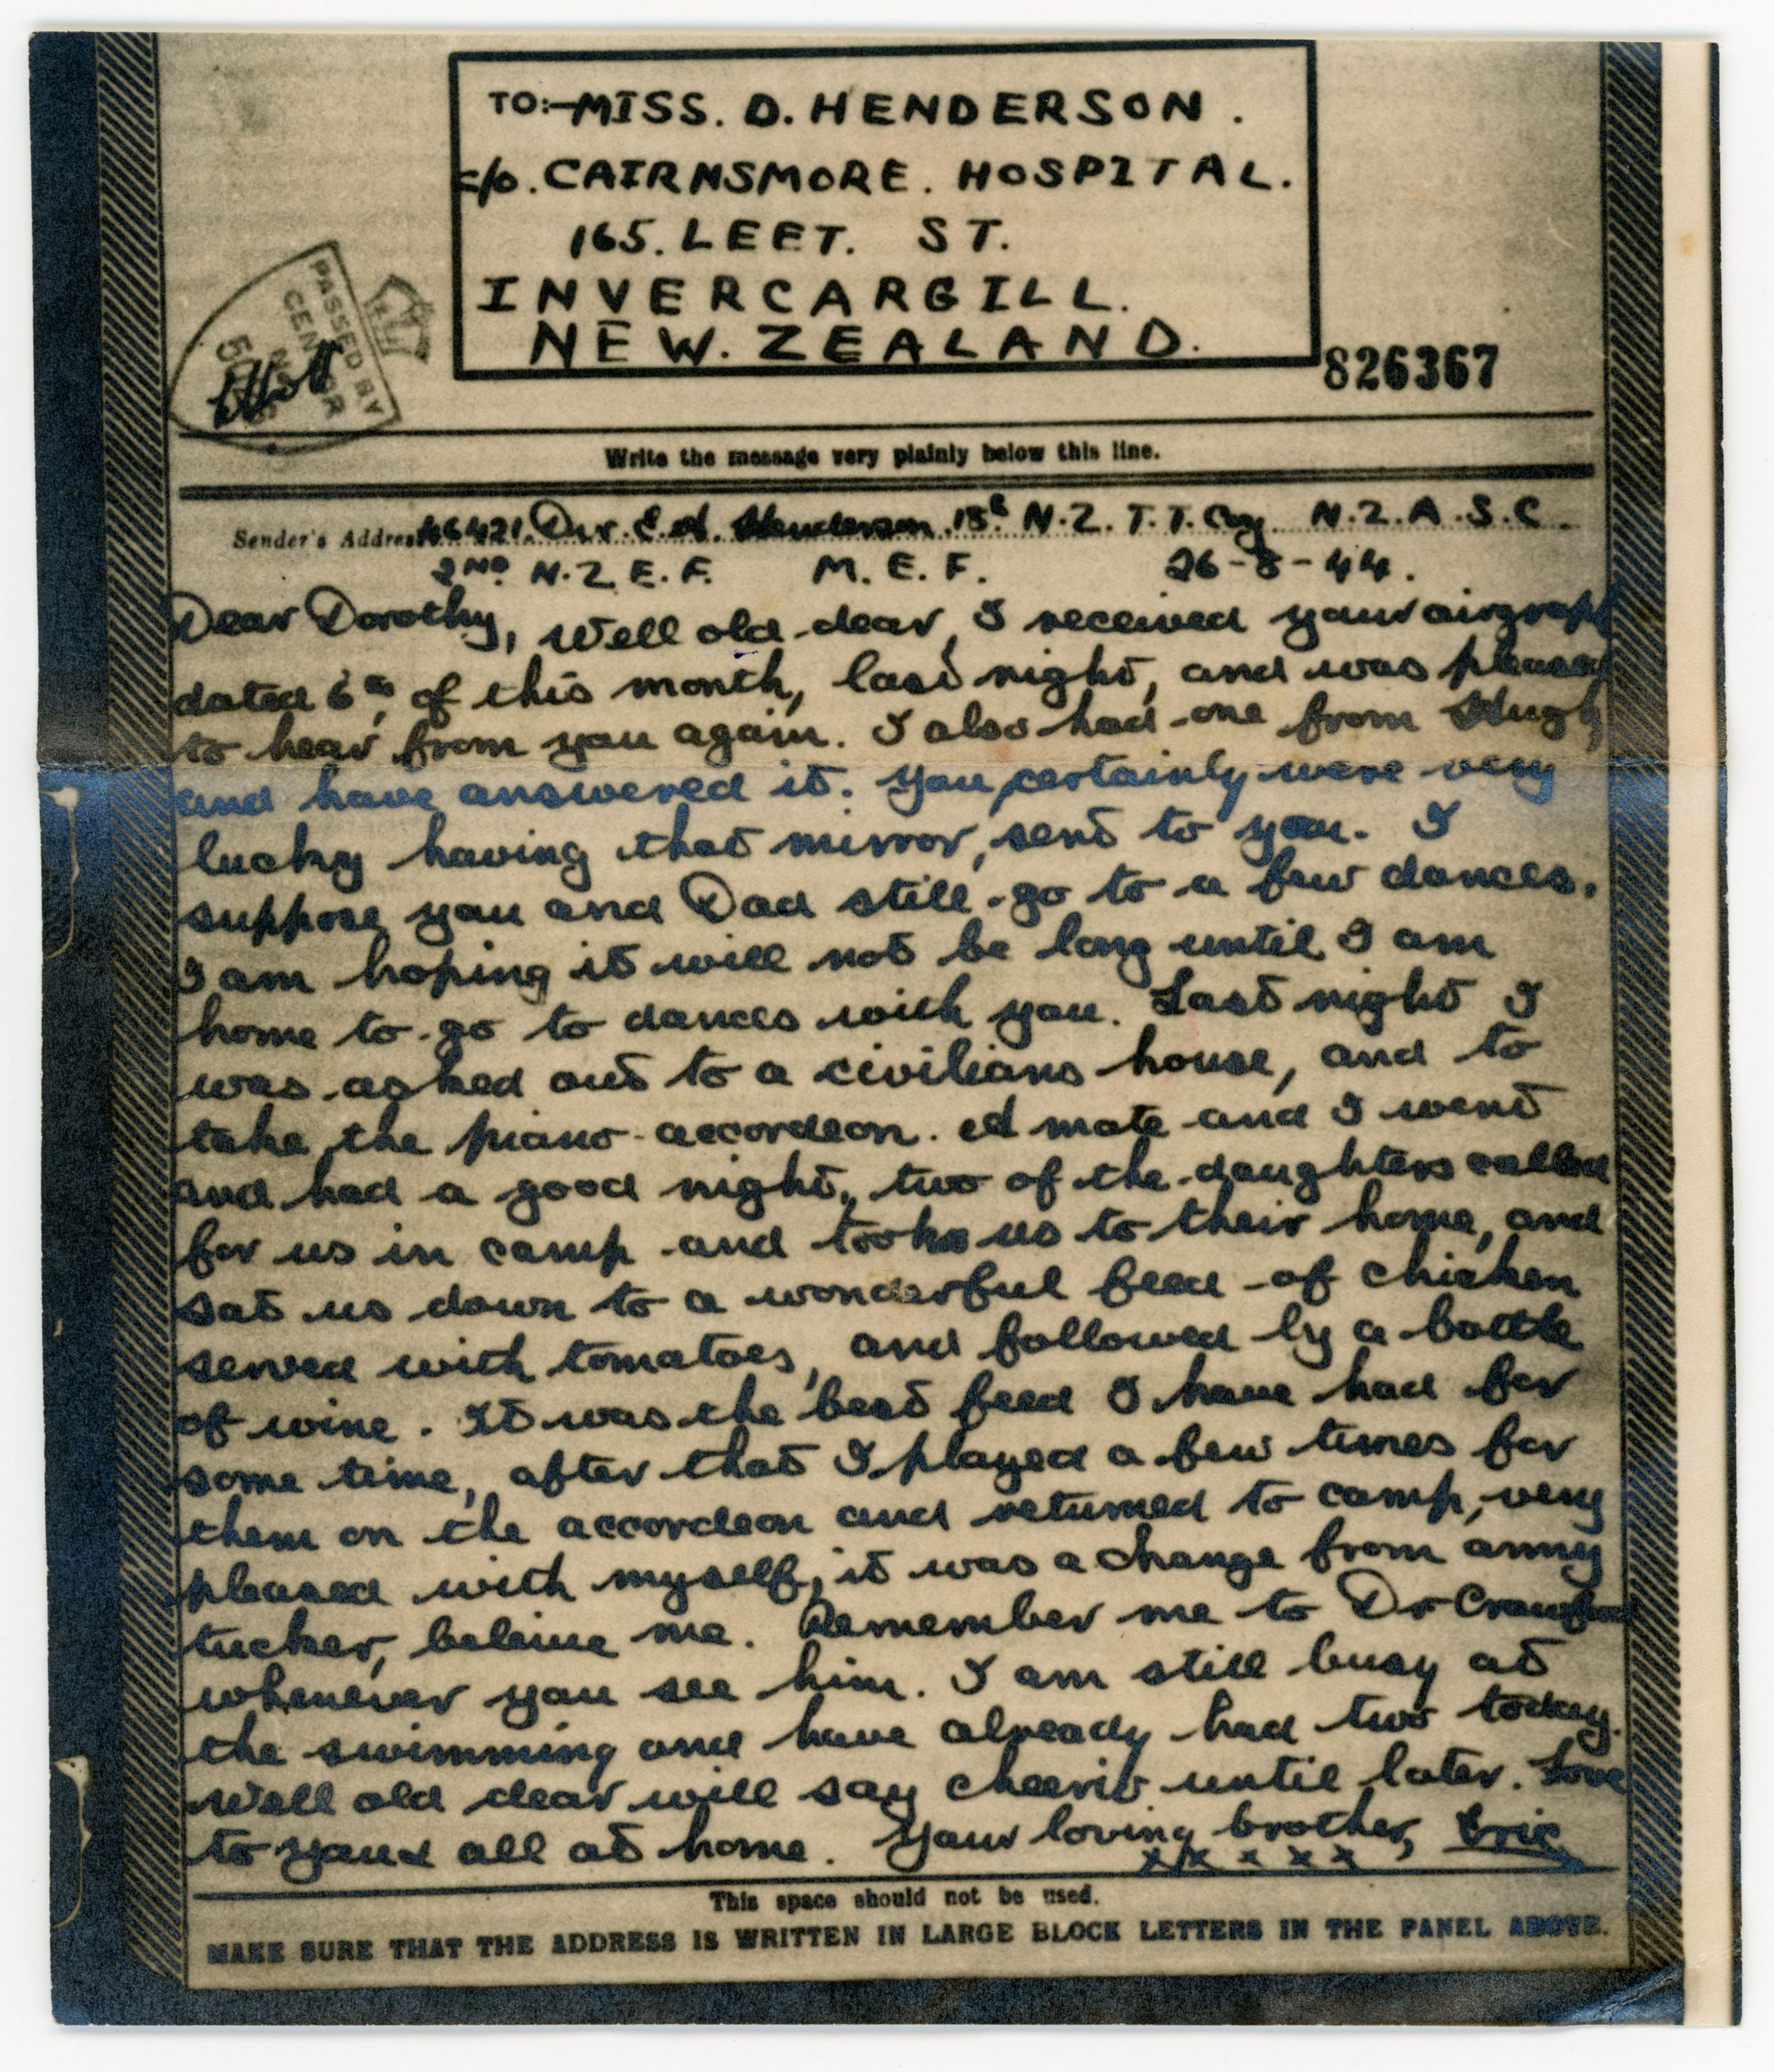 TO:- MISS. D. HENDERSON.
c/o. CAIRNSMORE. HOSPITAL.
165. LEET. ST.
INVERCARGILL.
NEW. ZEALAND.
PASSED BY
CENSOR
No.
826367
Write the message very plainly below this line.
Sender's Address 46421. Dvr. E. A. Henderson. 18th N.Z. T.T. Coy. N.Z.A.S.C.
2ND N.Z.E.F. M.E.F. 26-8-44.
Dear Dorothy, Well old dear, I received your airgraph
dated 6th, of this month, last night, and was pleased
to hear from you again. I also had one from Hugh,
and have answered it. You certainly were very
lucky having that mirror, sent to you. I
suppose you and Dad still go to a few dances.
I am hoping it will not be long until I am
home to go to dances with you. Last night I
was asked out to a civilians house, and to
take the piano accordeon. A mate and I went
and had a good night, two of the daughters called
for us in camp and took us to their home, and
sat us down to a wonderful feed of chicken
served with tomatoes, and followed by a bottle
of wine. It was the best feed I have had for
some time, after that I played a few times for
them on the accordeon and returned to camp, very
pleased with myself, it was a change from army
tucker, beleive me. Remember me to Dr Crawford
whenever you see him. I am still busy at
the swimming and have already had two today.
Well old dear will say cheerio until later. Love
to you & all at home. Your loving brother, Eric
x x x x x
This space should not be used.
MAKE SURE THAT THE ADDRESS IS WRITTEN IN LARGE BLOCK LETTERS IN THE PANEL ABOVE.